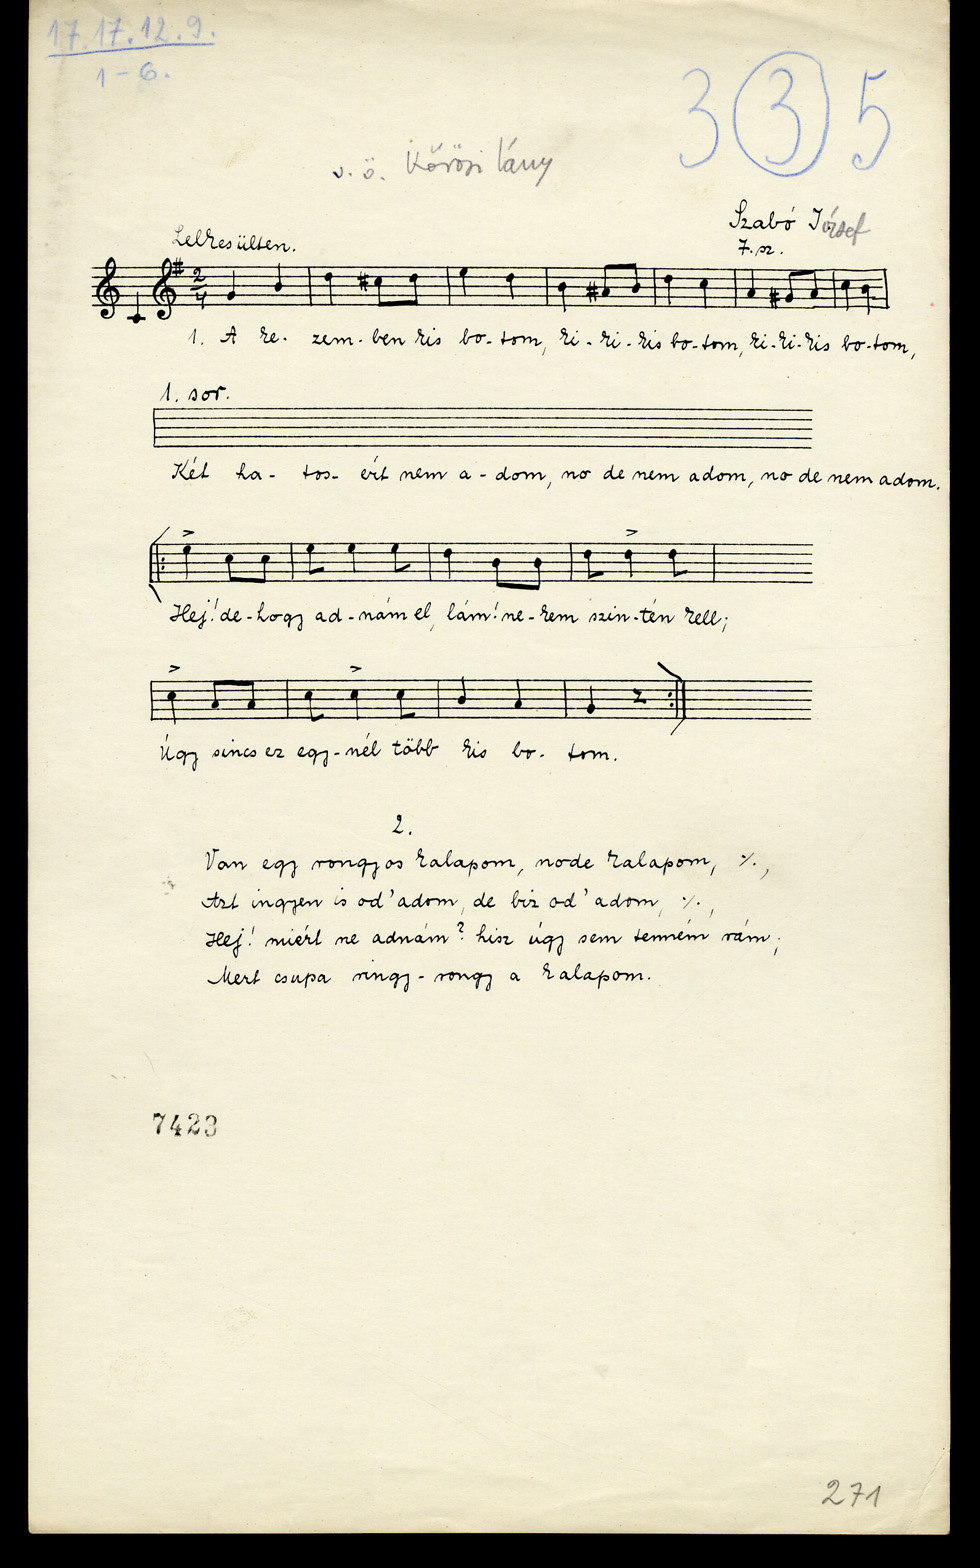 17.17.12.9.
1-6.
3 3 5
v.ö. Kőrösi lány
Szabó József
7. sz.
Lelkesülten.
2/4
1. A ke- zem-ben kis bo-tom, ki-ki-kis bo-tom, ki-ki-kis bo-tom,
1. sor.
Két ha- tos- ért nem a-dom, no de nem adom, no de nem adom.
Hej! de-hogy ad-nám el, lám! ne-kem szin-tén kell;
Úgy sincs ez egy-nél több kis bo- tom.
2.
Van egy rongyos kalapom, node kalapom, ·/.,
Azt ingyen is od'adom, de biz od'adom, ·/.,
Hej! miért ne adnám? hisz úgy sem tenném rám;
Mert csupa ringy-rongy a kalapom.
7423
271